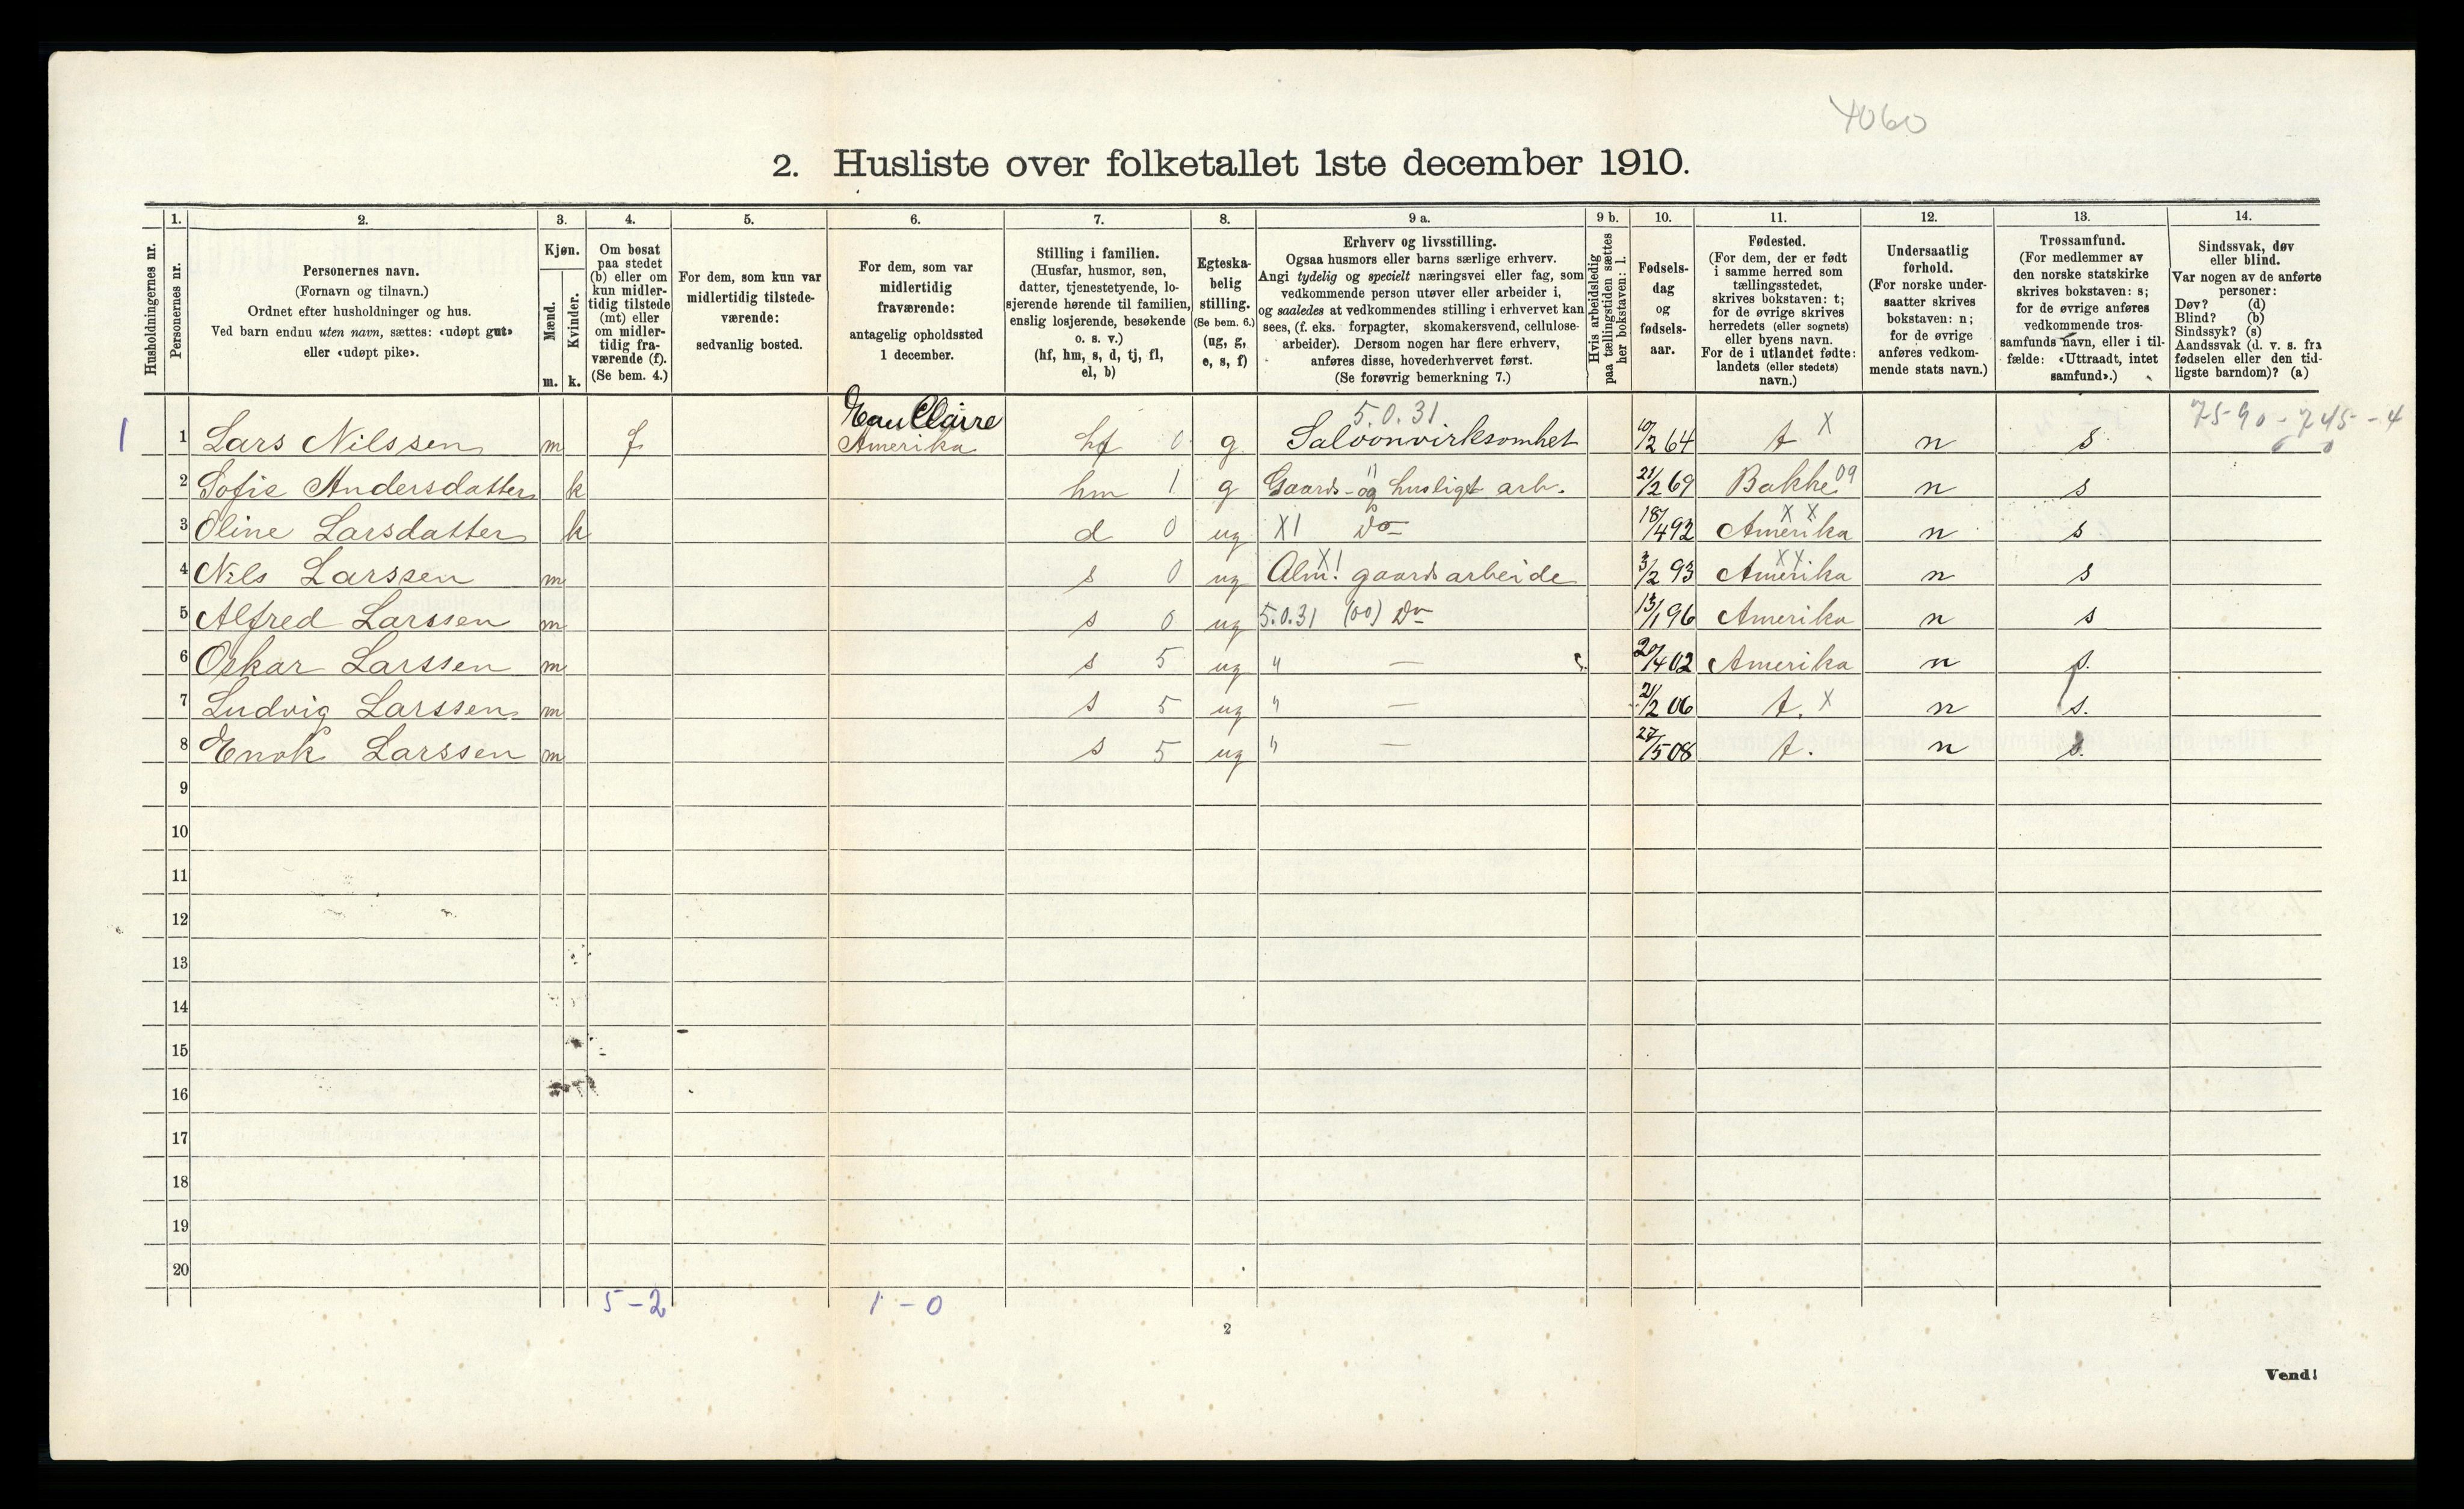 4060
2. Husliste over folketallet 1ste december 1910.
Husholdningernes nr.
1. Personernes nr.
2. Personernes navn.
(Fornavn og tilnavn.)
Ordnet efter husholdninger og hus.
Ved barn endnu uten navn, sættes: «udøpt gut»
eller «udøpt pike».
3. Kjøn.
Mænd. m.
Kvinder. k.
4. Om bosat
paa stedet
(b) eller om
kun midler-
tidig tilstede
(mt) eller
om midler-
tidig fra-
værende (f).
(Se bem. 4.)
5. For dem, som kun var
midlertidig tilstede-
værende:
sedvanlig bosted.
6. For dem, som var
midlertidig
fraværende:
antagelig opholdssted
1 december.
7. Stilling i familien.
(Husfar, husmor, søn,
datter, tjenestetyende, lo-
sjerende hørende til familien,
enslig losjerende, besøkende
o. s. v.)
(hf, hm, s, d, tj, fl,
el, b)
8. Egteska-
belig
stilling.
(Se bem. 6.)
(ug, g,
e, s, f)
9 a. Erhverv og livsstilling.
Ogsaa husmors eller barns særlige erhverv.
Angi tydelig og specielt næringsvei eller fag, som
vedkommende person utøver eller arbeider i,
og saaledes at vedkommendes stilling i erhvervet kan
sees, (f. eks. forpagter, skomakersvend, cellulose-
arbeider). Dersom nogen har flere erhverv,
anføres disse, hovederhvervet først.
(Se forøvrig bemerkning 7.)
9 b. Hvis arbeidsledig
paa tællingstiden sættes
her bokstaven: l.
10. Fødsels-
dag
og
fødsels-
aar.
11. Fødested.
(For dem, der er født
i samme herred som
tællingsstedet,
skrives bokstaven: t;
for de øvrige skrives
herredets (eller sognets)
eller byens navn.
For de i utlandet fødte:
landets (eller stedets)
navn.)
12. Undersaatlig
forhold.
(For norske under-
saatter skrives
bokstaven: n;
for de øvrige
anføres vedkom-
mende stats navn.)
13. Trossamfund.
(For medlemmer av
den norske statskirke
skrives bokstaven: s;
for de øvrige anføres
vedkommende tros-
samfunds navn, eller i til-
fælde: «Uttraadt, intet
samfund».)
14. Sindssvak, døv
eller blind.
Var nogen av de anførte
personer:
Døv? (d)
Blind? (b)
Sindssyk? (s)
Aandssvak (d. v. s. fra
fødselen eller den tid-
ligste barndom)? (a)
Eau Claire 5.0.31 75-90-745-4
1 1 Lars Nilssen m f Amerika hf 0 g Saloonvirksomhet 10/2 64 t X n s
2 Sofie Andersdatter k hm 1 g Gaards- og husligt arb. 21/2 69 Bakke 09 n s
3 Oline Larsdatter k d 0 ug X1 Do 18/4 92 Amerika X X n s
4 Nils Larssen m s 0 ug Alm. X1 gaardsarbeide 3/2 93 Amerika X X n s
5 Alfred Larssen m s 0 ug 5.0.31 (00) Do 13/1 96 Amerika n s
6 Oskar Larssen m s 5 ug " — 20/4 02 Amerika n s.
7 Ludvig Larssen m s 5 ug " — 21/2 06 t. X n s.
8 Enok Larssen m s 5 ug " — 27/5 08 t. n s.
9
10
11
12
13
14
15
16
17
18
19
20
5-2 1-0
2
Vend!